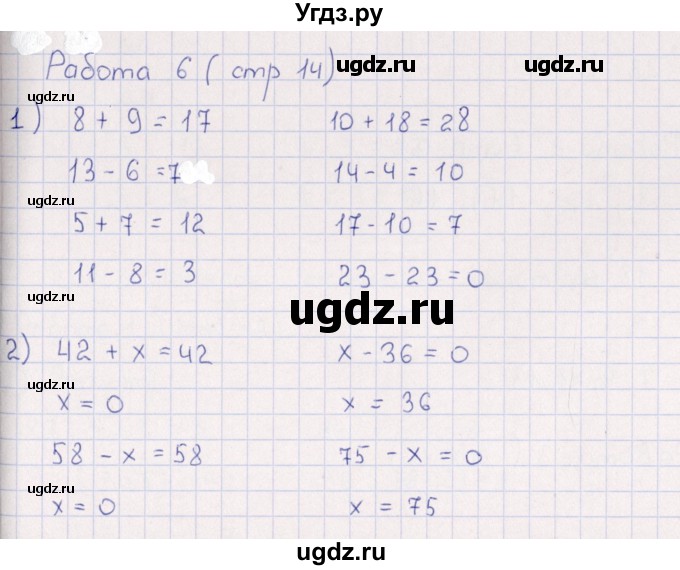 Угдз.ру
Работа 6 ( стр 14) ugdz.ru ugdz.ru
ugdz.ru
1) 8 + 9 = 17 10 + 18 = 28
13 - 6 = 7 14 - 4 = 10
ugdz.ru
5 + 7 = 12 17 - 10 = 7
11 - 8 = 3 23 - 23 = 0
ugdz.ru
ugdz.ru
2) 42 + x = 42 x - 36 = 0
ugdz.ru
x = 0 x = 36
58 - x = 58 75 - x = 0
ugdz.ru
x = 0 x = 75
ugdz.ru